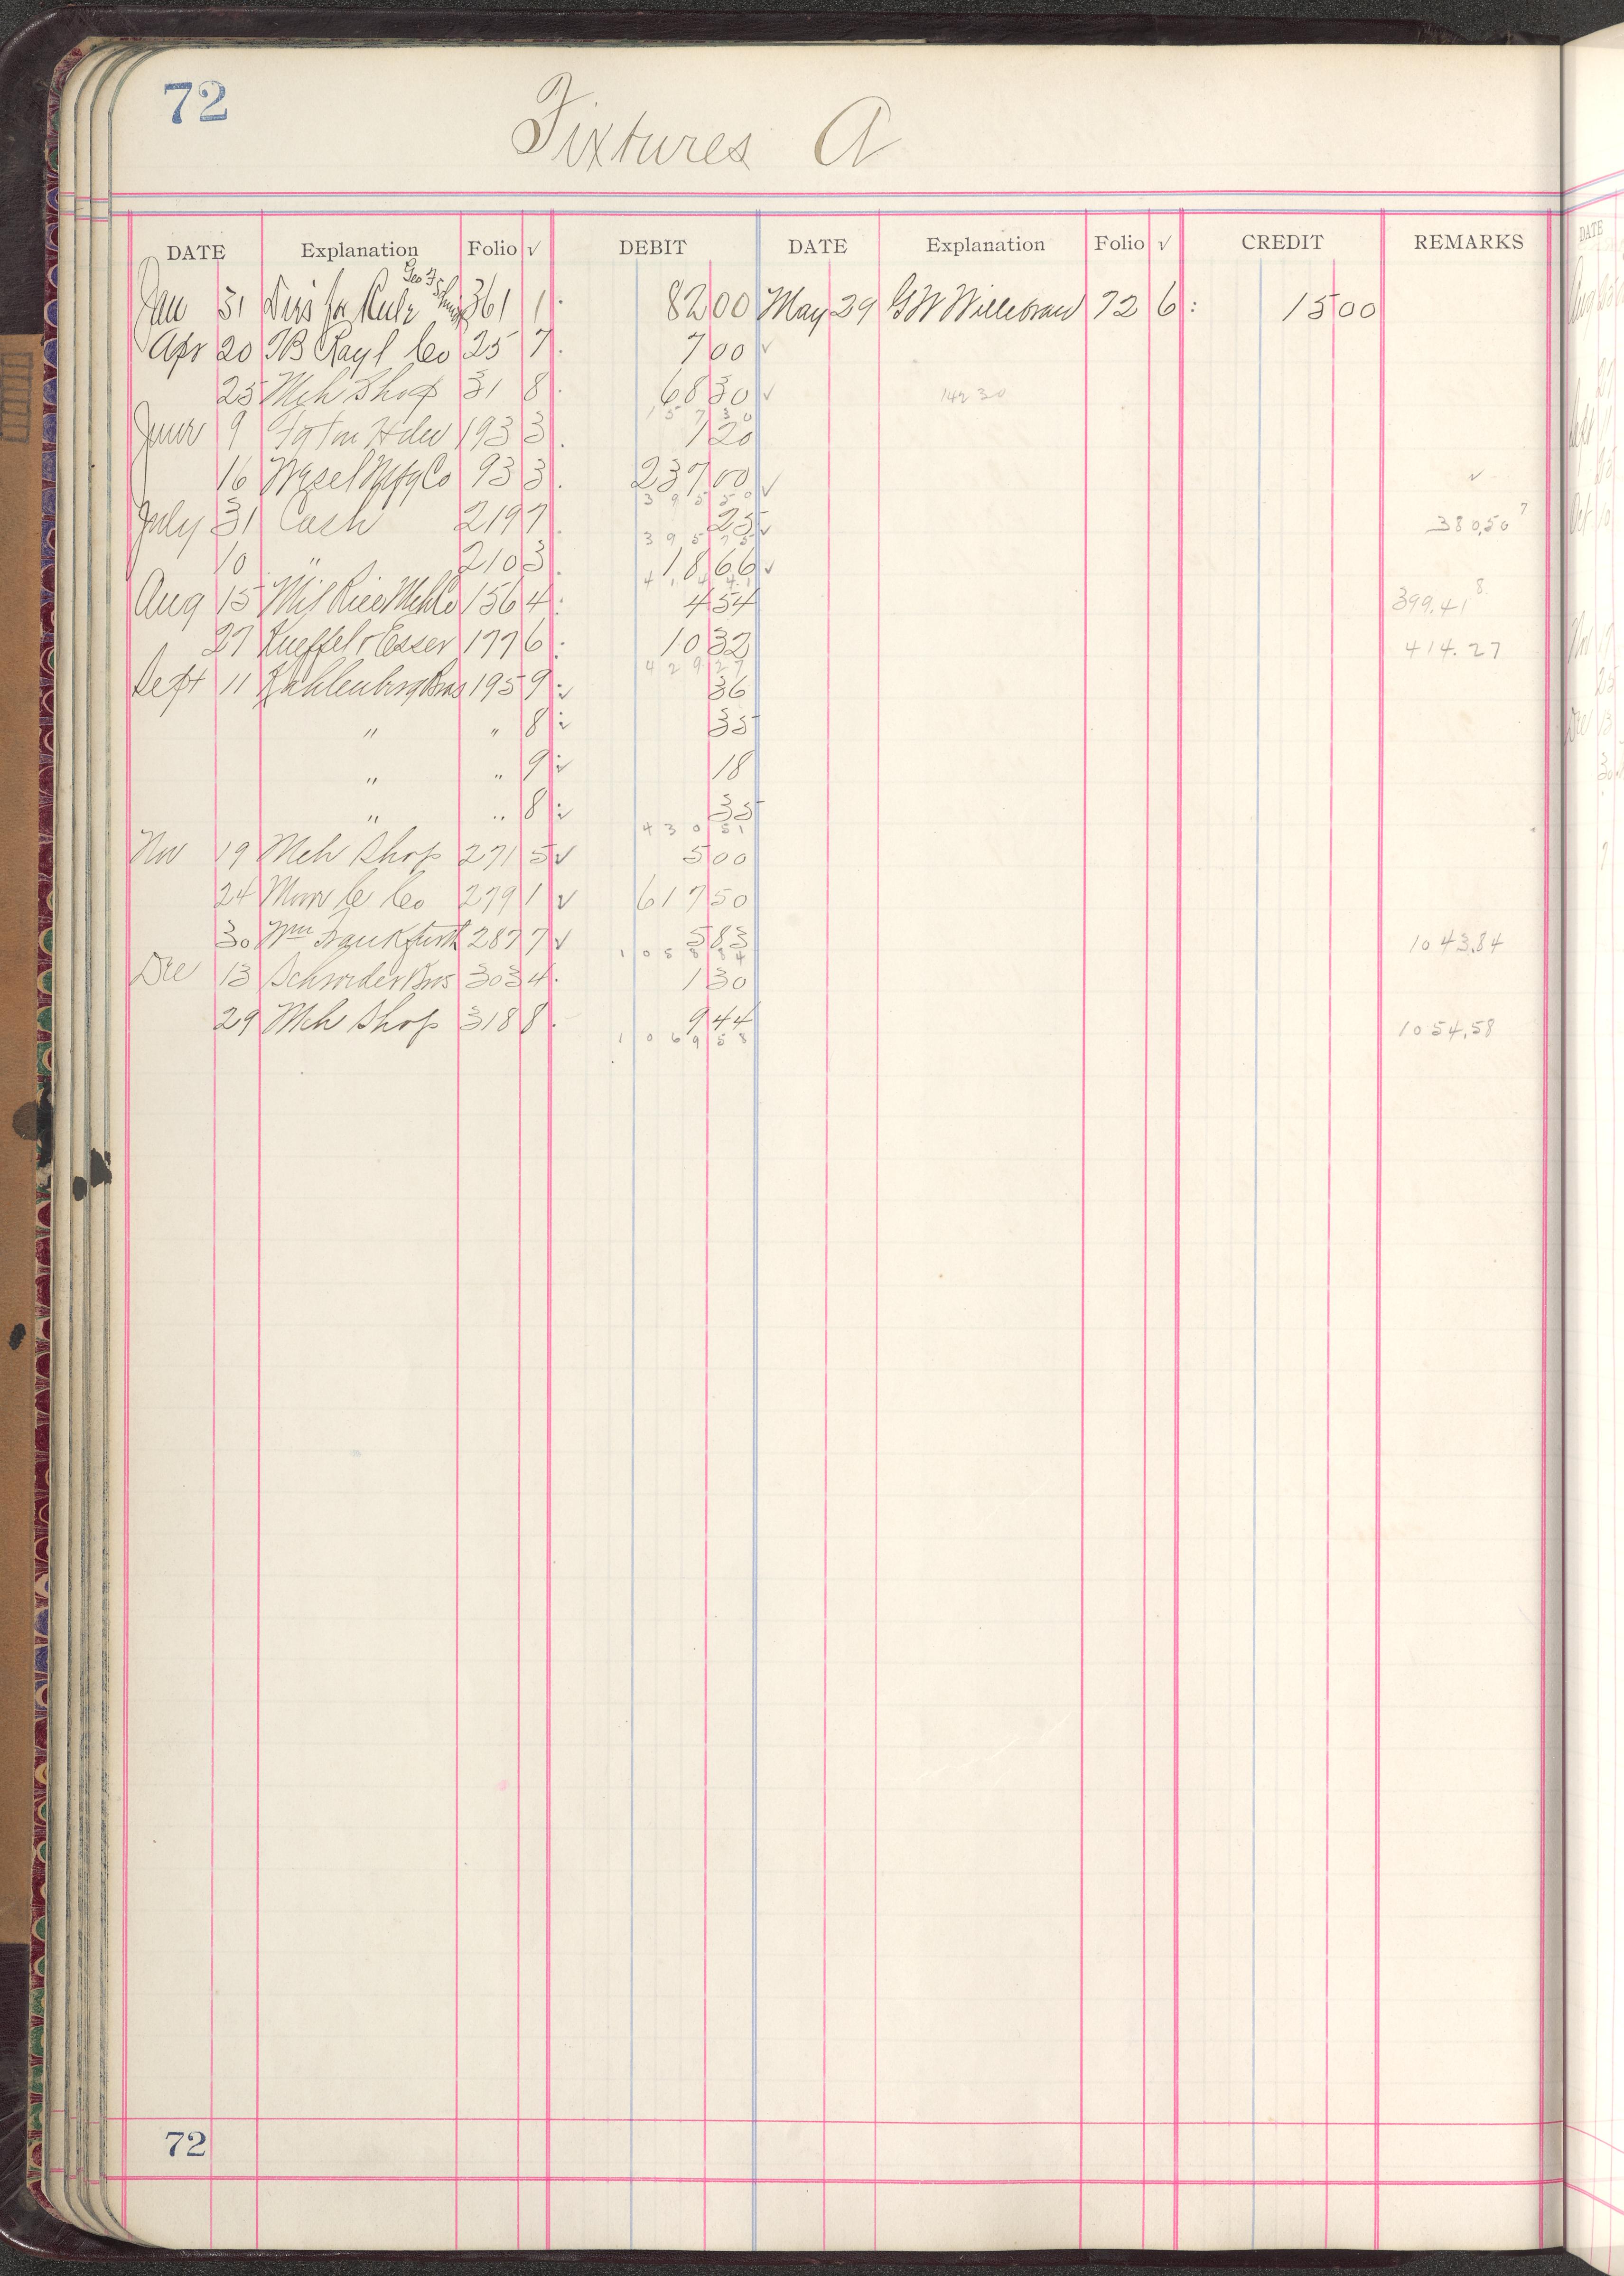 72
Fixtures A
DATE Explanation Folio √ DEBIT DATE Explanation Folio √ CREDIT REMARKS
Geo F
Jan 31 for 361 1 82 00 May 29 GW Willebrand 72 6 15 00
Apr 20 TB Rayl Co 25 7 7 00 √
25 Mch Shop 31 8 68 30 √ 142 30
157 30
June 9 Hdw 193 3 1 20
16 Mfg Co 93 3 237 00 √ √
395 50
July 31 Cash 219 7 25 √ 380,50 7
395 75
10 " 210 3 18 66 √
414 41
Aug 15 Mil Rice Mch Co 156 4 4 54 399.41 8
27 Kueffel & Esser 177 6 10 32 414.27
429 27
Sept 11 Kahlenberg Bros 195 9 √ 36
" " 8 √ 35
" " 9 √ 18
" " 8 √ 35
430 51
Nov 19 Mch Shop 271 5 √ 5 00
24 Co 279 1 √ 617 50
30 Wm Frankfurth 287 7 √ 5 83 1043.84
1058 84
Dec 13 Schroeder Bros 303 4 1 30
29 Mch Shop 318 8 9 44 1054.58
1069 58
72